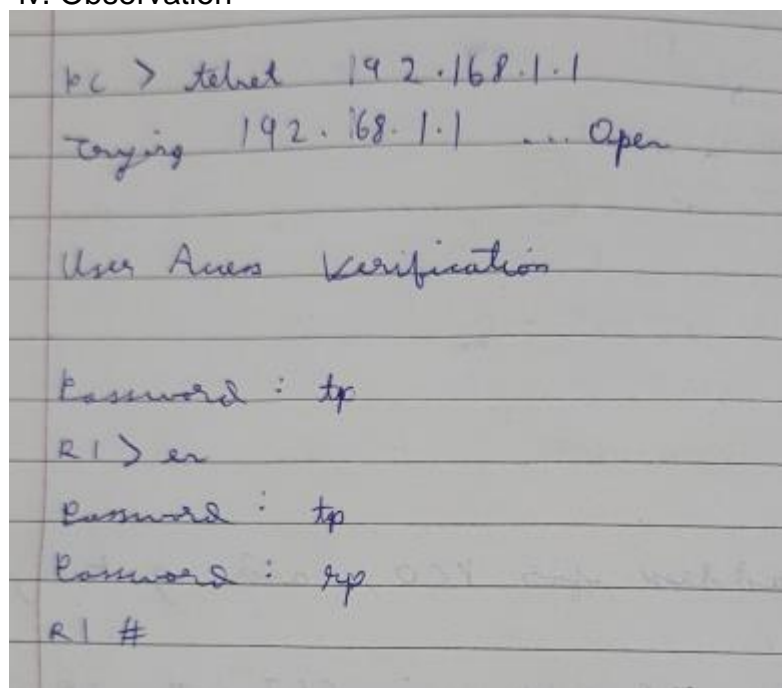 iv. Observation
PC > telnet 192.168.1.1
Trying 192.168.1.1 ... Open
User Access Verification
Password : tp
R1 > en
Password : tp
Password : rp
R1 #